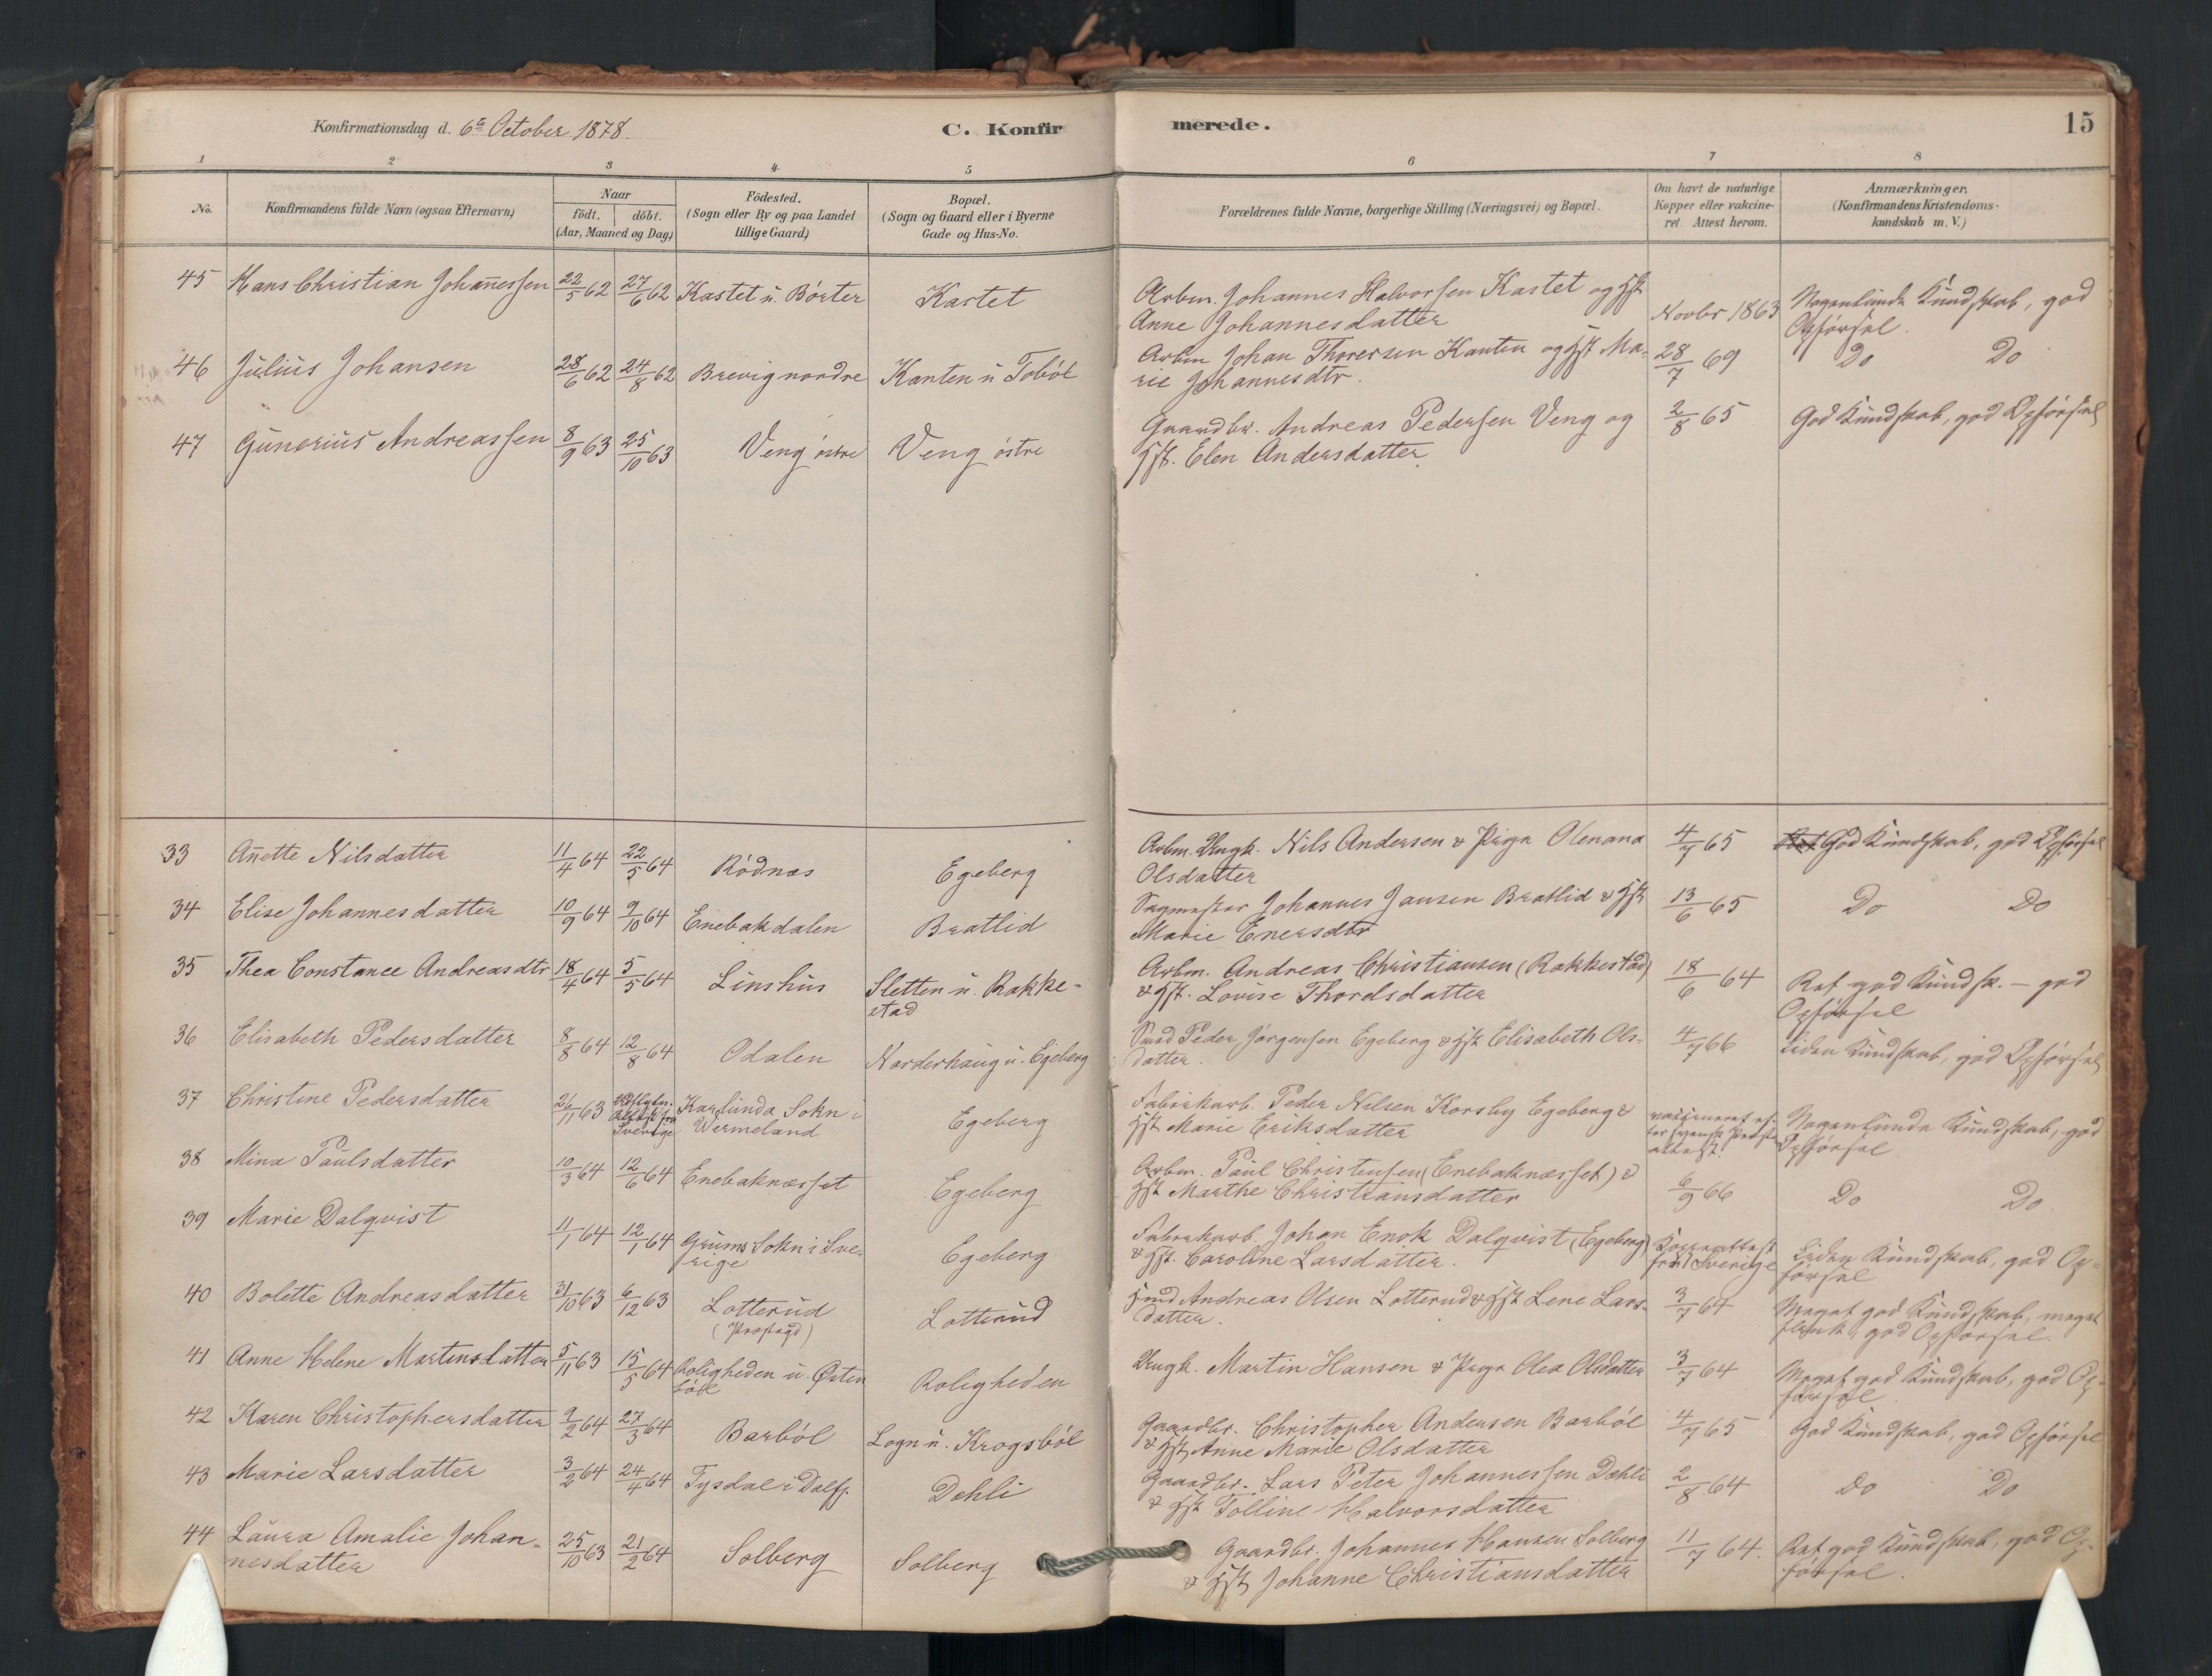 Konfirmationsdag d. 6te October 1878.
C. Konfirmerede.
15
1 2 3 4 5 6 7 8
No.
Konfirmandens fulde Navn (ogsaa Efternavn)
Naar
födt. döbt.
(Aar, Maaned og Dag)
Födested.
(Sogn eller By og paa Landet
tillige Gaard)
Bopæl.
(Sogn og Gaard eller i Byerne
Gade og Hus-No.
Forældrenes fulde Navne, borgerlige Stilling (Næringsvei) og Bopæl.
Om havt de naturlige
Kopper eller vakcine-
ret Attest herom.
Anmærkninger.
(Konfirmandens Kristendoms-
kundskab m. V.)
45 Hans Christian Johannessen 22/5 62 27/6 62 Kastet u. Börter Kastet Arbm. Johannes Halvorsen Kastet og Hst Novbr 1863 Nogenlunde Kundskab, god
Anne Johannesdatter Opförsel.
46 Julius Johansen 28/6 62 24/8 62 Brevig nordre Kanten u Toböl Arbm Johan Thorersen Kanten og Hst Ma- 28/7 69 Do Do
rie Johannesdtr.
47 Gunerius Andreassen 8/9 63 25/10 63 Veng östre Veng östre Gaardbr. Andreas Pedersen Veng og 2/8 65 God Kundskab, god Opförsel
Hst. Elen Andersdatter
33 Anette Nilsdatter 11/4 64 22/5 64 Rödnæs Egeberg Arbm. Ungk. Nils Andersen & Pige Olenana 4/7 65 God Kundskab, god Opförsel
Olsdatter
34 Elise Johannesdatter 10/9 64 9/10 64 Enebakdalen Bratlid Sagmester Johannes Jansen Bratlid & Hst 13/6 65 Do Do
Marie Enersdtr
35 Thea Constance Andreasdtr 18/4 64 5/5 64 Linshus Sletten u. Rakke- Arbm. Andreas Christiansen (Rakkestad) 18/6 64 Ret god Kundsk. — god
stad & Hst. Lovise Thordsdatter Opförsel
36 Elisabeth Pedersdatter 8/8 64 12/8 64 Odalen Narderhaug u. Egeberg Smed Peder Jørgensen Egeberg & Hst Elisabeth Ols- 4/7 66 Liden Kundskab, god Opförsel
datter.
37 Christine Pedersdatter 26/11 63 Sverige Karlunda Sokn i Egeberg Fabrikarb. Peder Nilsen Korsby Egeberg & vaccineret ef- Nogenlunde Kundskab, god
Wermeland Hst Marie Eriksdatter ter svensk Præste Opförsel
attest.
38 Mina Paulsdatter 10/3 64 12/6 64 Enebaknæsset Egeberg Arbm. Paul Christensen (Enebaknæsset) & 6/9 66 Do Do
Hst Marthe Christiansdatter
39 Marie Dalqvist 11/1 64 12/1 64 Grums Sokn i Sve- Egeberg Fabrikarb. Johan Enok Dalqvist (Egeberg) Koppeattest Liden Kundskab, god Op-
rige & Hst. Caroline Larsdatter. fra Sverige försel
40 Bolette Andreasdatter 31/10 63 6/12 63 Lotterud Lotterud Andreas Olsen Lotterud & Hst Lene Lars- 3/7 64 Meget god Kundskab, meget
(Præstegd) datter. flink, god Opförsel.
41 Anne Helene Martensdatter 5/11 63 15/5 64 Roligheden u. Østen Roligheden Ungk. Martin Hansen & Pige Olea Olsdatter 3/7 64 Meget god Kundskab, god Op-
böl försel
42 Karen Christophersdatter 9/2 64 27/3 64 Barböl Logn u. Krogsböl Gaardbr. Christopher Andersen Barböl 4/7 65 God Kundskab, god Opförsel
& Hst Anne Marie Olsdatter
43 Marie Larsdatter 3/2 64 24/4 64 Tysdal i Dalsf. Dehli Gaardbr. Lars Peter Johannessen Dæhli 2/8 64 Do Do
& Hst Tolline Halvorsdatter
44 Laura Amalie Johan- 25/10 63 21/2 64 Solberg Solberg Gaardbr. Johannes Hansen Solberg 11/7 64. Ret god Kundskab, god Op-
nesdatter & Hst Johanne Christiansdatter försel.